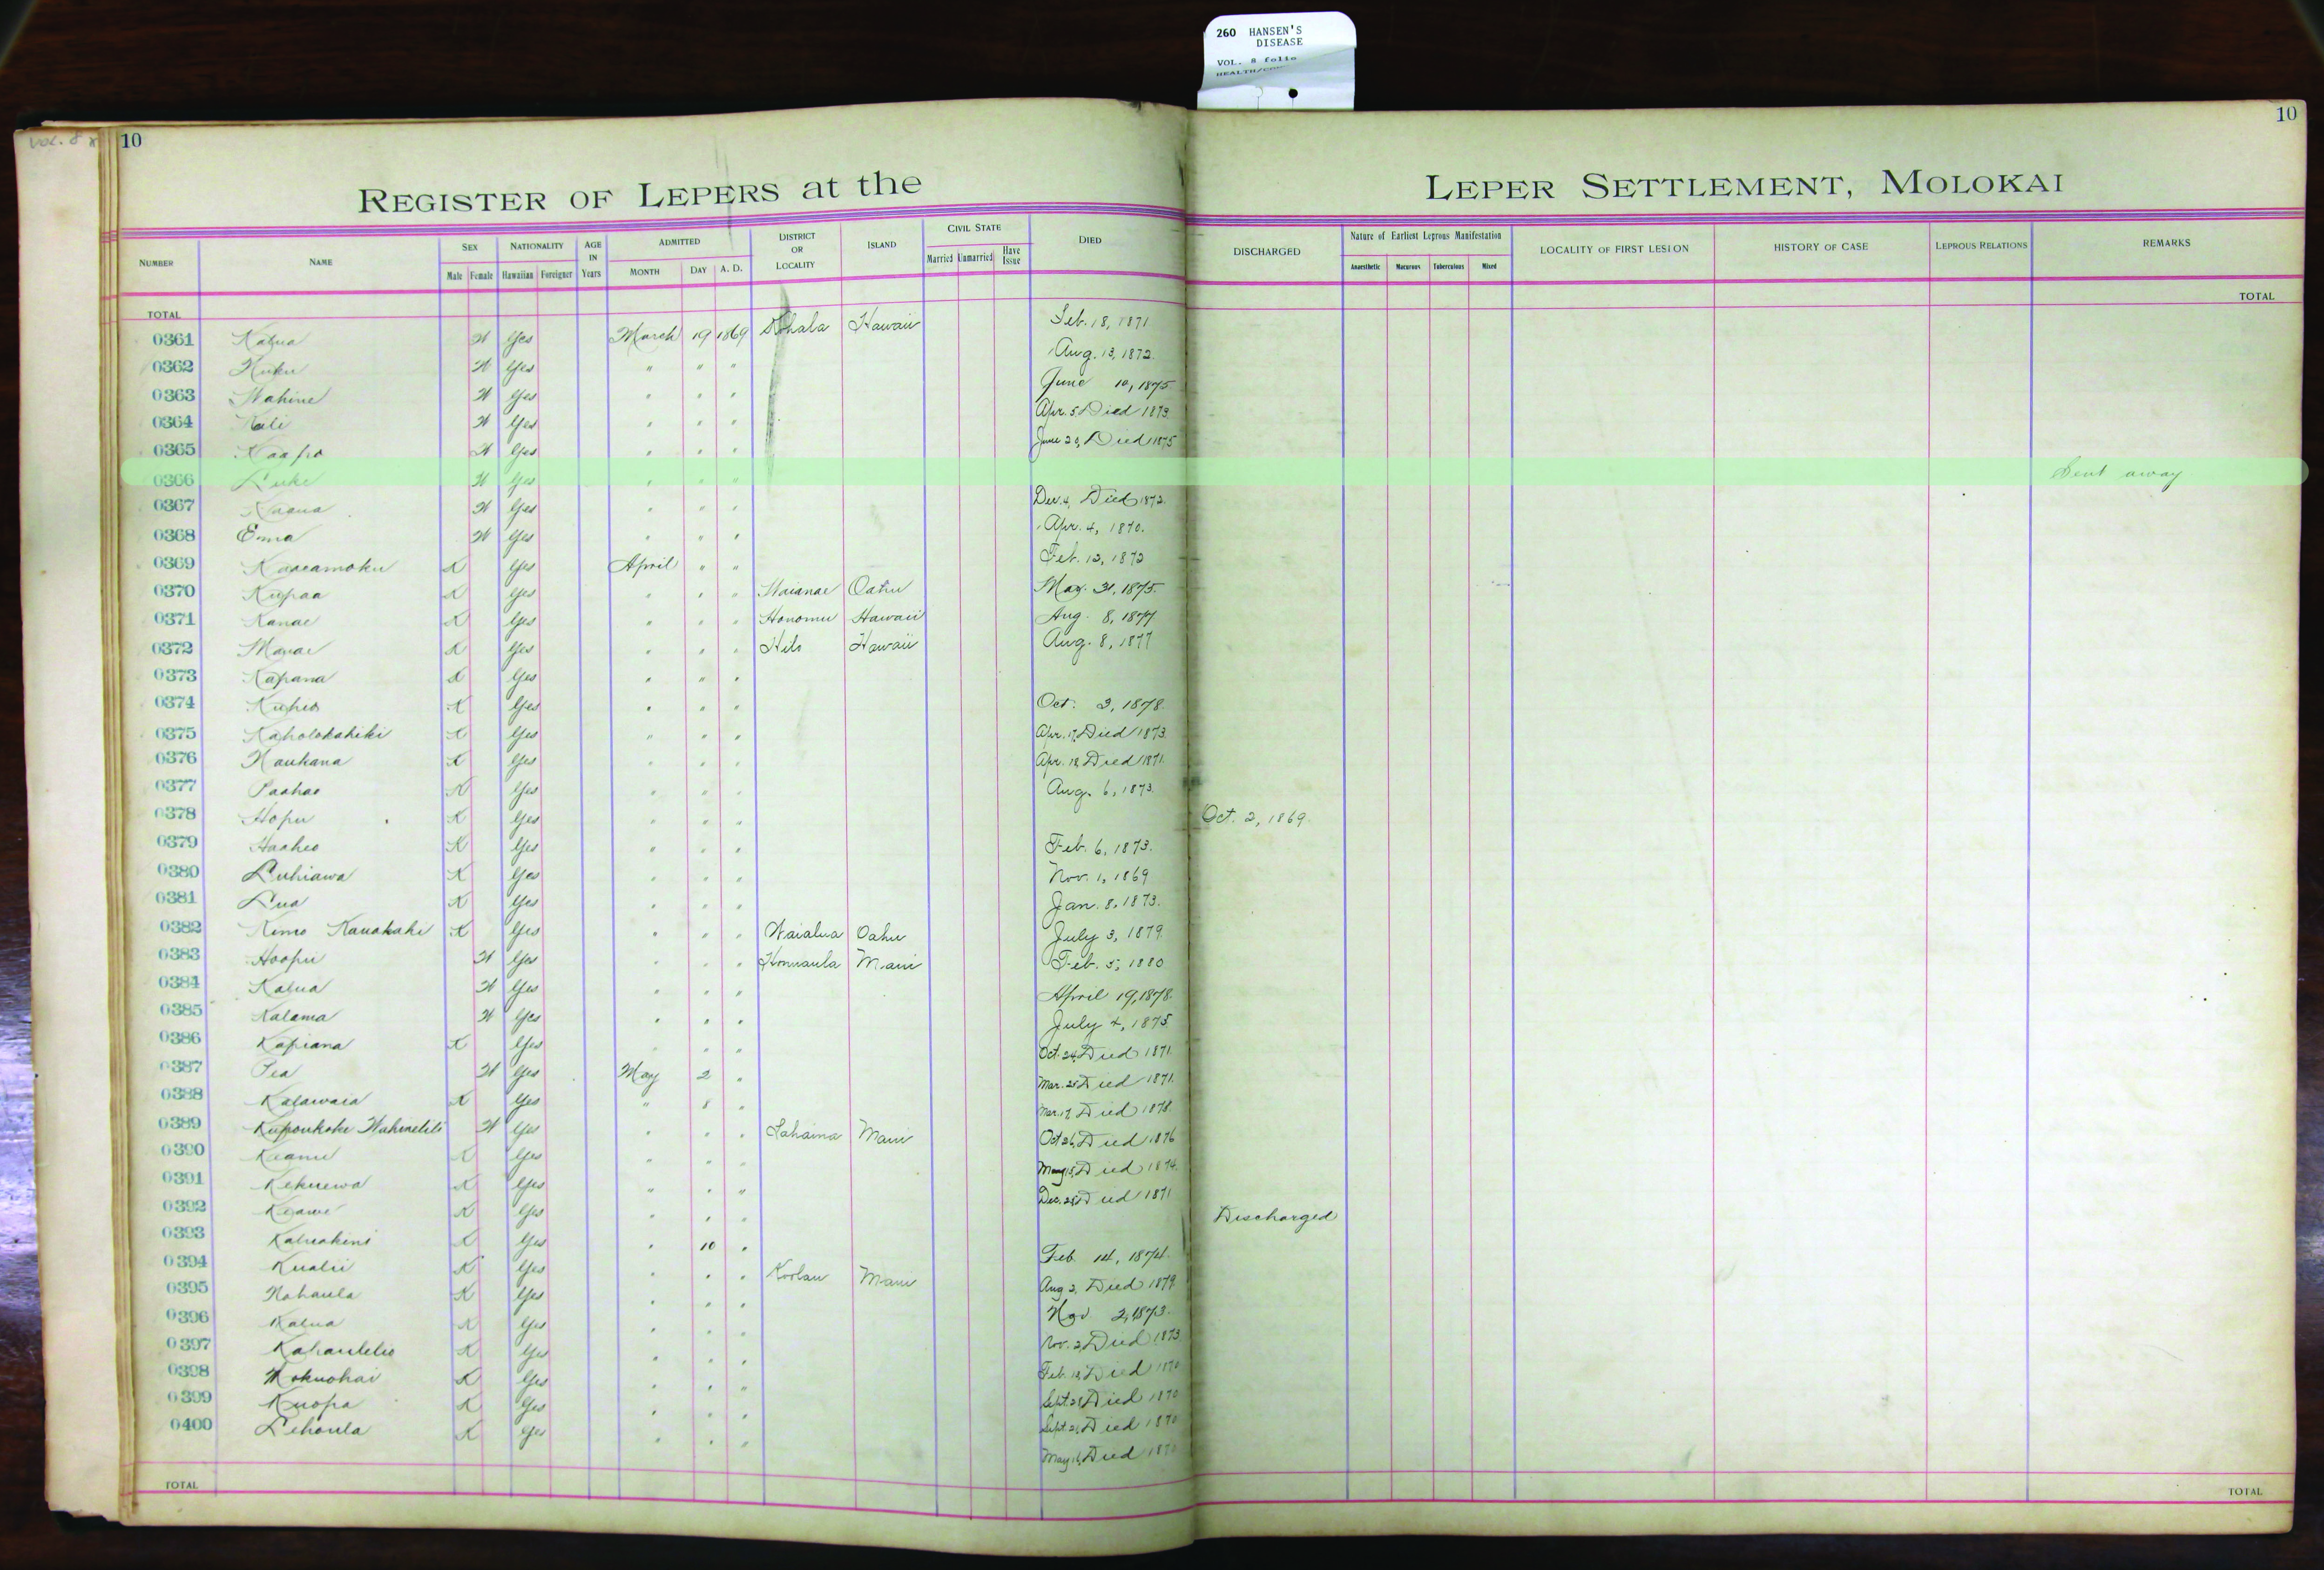 260 HANSEN'S
DISEASE
VOL. 8 folio
VOL. 8
10
10
REGISTER OF LEPERS at the LEPER SETTLEMENT, MOLOKAI
NUMBER NAME SEX NATIONALITY AGE IN Years ADMITTED DISTRICT OR LOCALITY ISLAND CIVIL STATE DIED DISCHARGED Nature of Earliest Leprous Manifestation LOCALITY OF FIRST LESION HISTORY OF CASE LEPROUS RELATIONS REMARKS
Male Female Hawaiian Foreigner MONTH DAY A. D. Married Unmarried Have Issue Anaesthetic Macurous Tuberculous Mixed
TOTAL TOTAL
0361 Kalua W Yes March 19 1869 Kohala Hawaii Feb. 18, 1871
0362 Kuku W Yes " " " Aug. 13, 1872.
0363 Wahine W Yes " " " June 10, 1875
0364 Kali W Yes " " " Apr. 5 Died 1873.
0365 Kaapo W Yes " " " June 20, Died 1875
0366 Luke W Yes " " " Sent away
0367 W Yes " " " Dec. 4, Died 1872.
0368 Emma W Yes " " " Apr. 4, 1870.
0369 Kaaeamoku K Yes April " " Feb. 12, 1872
0370 Kupaa K Yes " " " Waianae Oahu May. 31, 1875.
0371 Kanae K Yes " " " Honomu Hawaii Aug. 8, 1877
0372 K Yes " " " Hilo Hawaii Aug. 8, 1877
0373 Kapana K Yes " " "
0374 Kuheo K Yes " " " Oct. 3, 1878.
0375 Kaholokahiki K Yes " " " Apr. 17, Died 1873.
0376 Naukana K Yes " " " Apr. 18, Died 1871.
0377 Paahao K Yes " " " Aug. 6, 1873.
0378 Hopu K Yes " " " Oct. 2, 1869.
0379 Haaheo K Yes " " " Feb. 6, 1873.
0380 Luhiawa K Yes " " " Nov. 1, 1869
0381 Lua K Yes " " " Jan. 8, 1873.
0382 Kimo Kauakahi K Yes " " " Waialua Oahu July 3, 1879.
0383 Hoopii W Yes " " " Honuaula Maui Feb. 5, 1880
0384 Kalua W Yes " " " April 19, 1878.
0385 Kalama W Yes " " " July 4, 1875
0386 Kapiana K Yes " " " Oct. 24, Died 1871.
0387 Pea W Yes May 2 " Mar. 25 Died 1871.
0388 Kalawaia K Yes " 8 " Mar. 17, Died 1878.
0389 Kupoukoke W Yes " " " Lahaina Maui Oct 26, Died 1876
0390 Keanu K Yes " " " May 15, Died 1874.
0391 Kekuewa K Yes " " " Dec. 28, Died 1871
0392 Keawe K Yes " " " Discharged
0393 K Yes " 10 " Feb. 14, 1874.
0394 Kualii K Yes " " " Koolau Maui Aug 2, Died 1879.
0395 Nohaula K Yes " " " Nov 2, 1873.
0396 Kalua K Yes " " " Nov. 2, Died 1873
0397 Kahaulelio K Yes " " " Feb. 18, Died 1870
0398 Mokuohai K Yes " " " Sept. 28, Died 1870
0399 Kuopa K Yes " " " Sept. 21, Died 1870
0400 Lehoula K Yes " " " May 16, Died 1870
TOTAL TOTAL